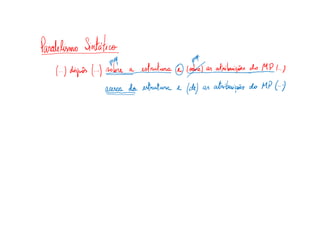 Paralelismo Sintático
prep prep
(...) dispõe (...) sobre a estrutura e (sobre) as atribuições do MP (...)
acerca da estrutura e (de) as atribuições do MP (...)